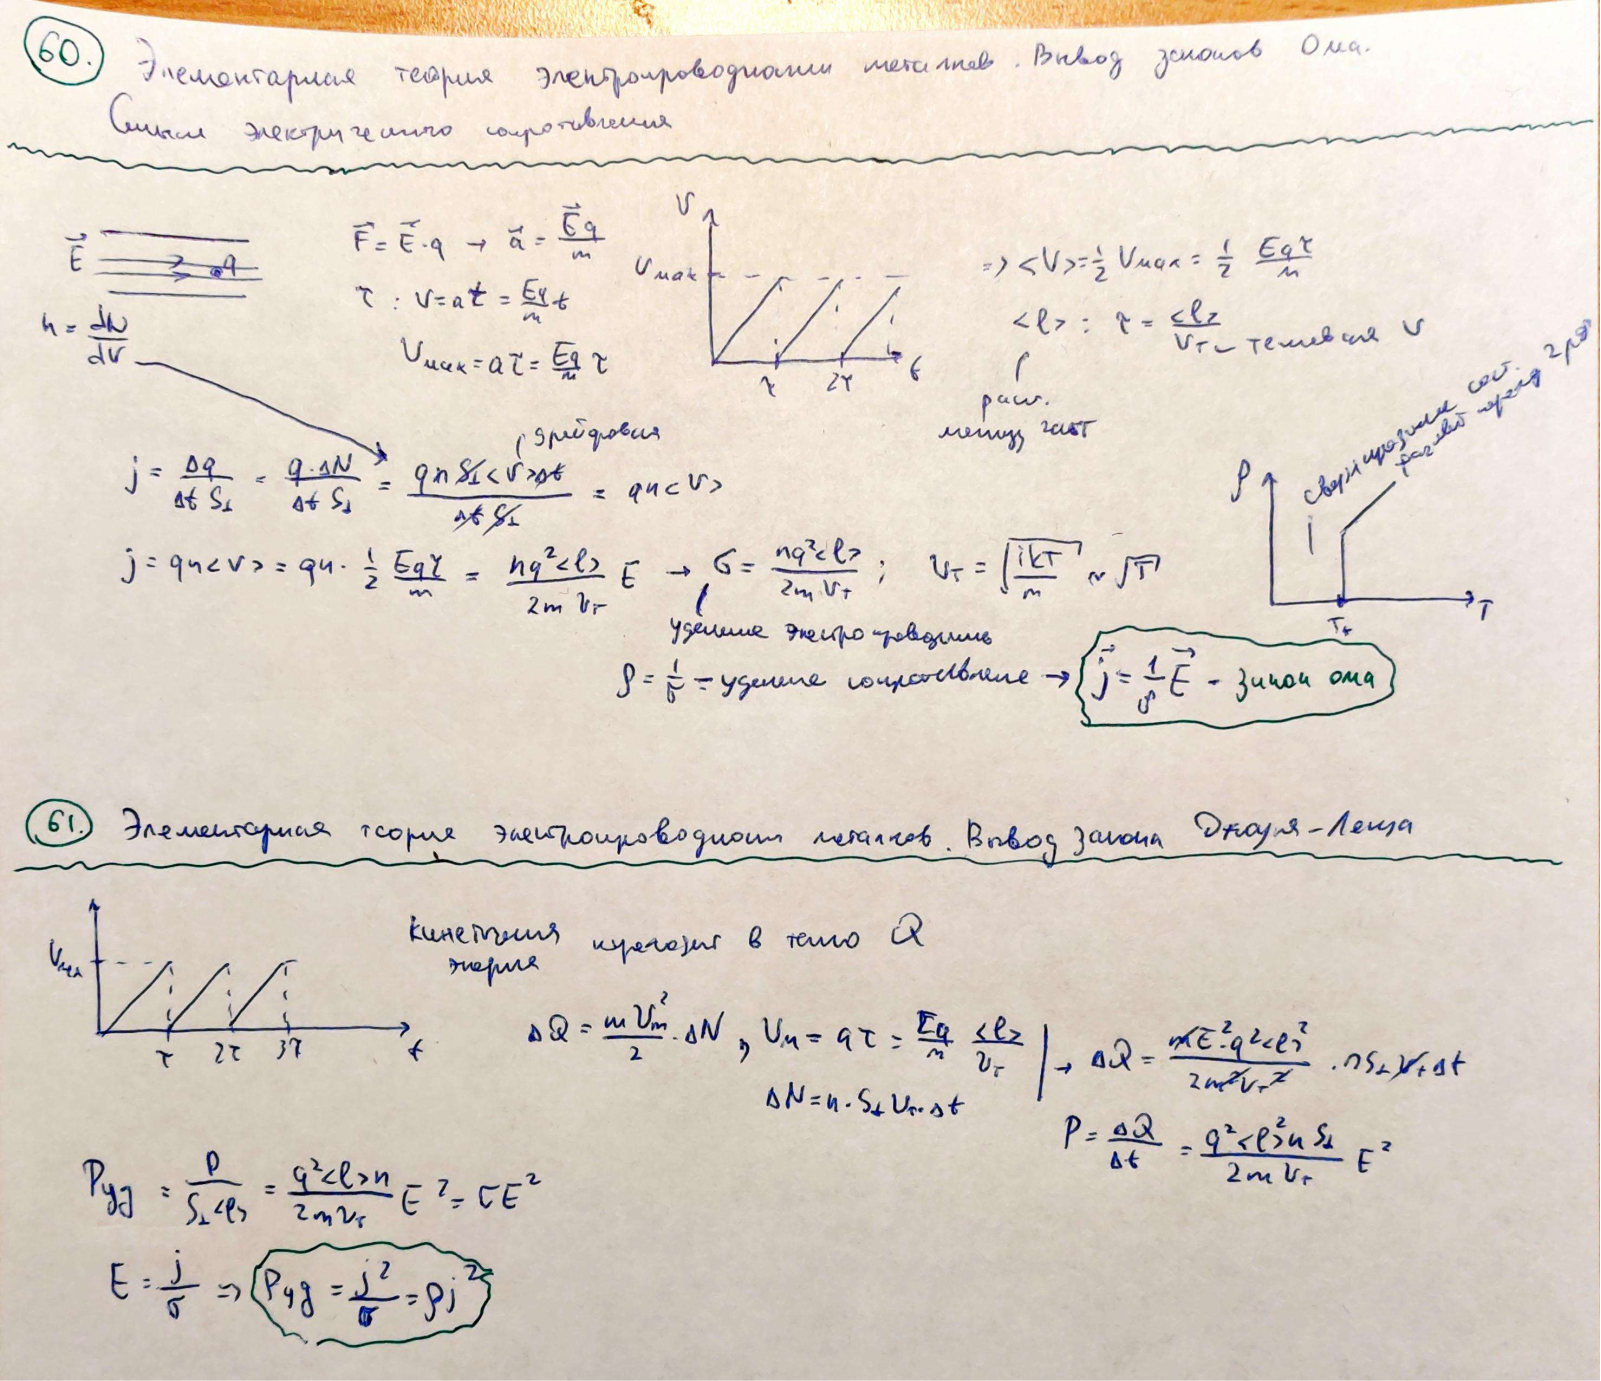 60. Элементарная теория электропроводности металлов. Вывод законов Ома.
Смысл электрического сопротивления
E⃗ q
n = dN/dV
F⃗ = E⃗·q → a⃗ = E⃗q/m
τ : v = at = Eq/m t
Vмах = aτ = Eq/m τ
V
Vмах
τ 2τ t
=> <V> = 1/2 Vмах = 1/2 Eqτ/m
<l> : τ = <l>/Vт - тепловая V
расст.
между част
j = Δq/(Δt S⊥) = q·ΔN/(Δt S⊥) = qn S⊥<v>Δt/(Δt S⊥) = qn<v>
дрейфовая
j = qn<v> = qn · 1/2 Eqτ/m = nq²<l>/(2m Vт) E → G = nq²<l>/(2m Vт) ; Vт = √(ikT/m) ~ √T
удельная электропроводность
ρ = 1/σ - удельное сопротивление → j⃗ = 1/ρ E⃗ - закон ома
ρ
T
Tк
сверхпроводящее сост.
фазовый переход 2 рода
61. Элементарная теория электропроводности металлов. Вывод закона Джоуля-Ленца
Vмах
τ 2τ 3τ t
Кинетическая энергия переходит в тепло Q
ΔQ = mVm²/2 · ΔN, Vм = aτ = Eq/m <l>/Vт
ΔN = n·S⊥Vт·Δt
→ ΔQ = mE²·q²<l>²/(2m²Vт²) · nS⊥VтΔt
P = ΔQ/Δt = q²<l>²n S⊥/(2m Vт) E²
Pуд = P/(S⊥<l>) = q²<l>n/(2mVт) E² = σE²
E = j/σ => Pуд = j²/σ = ρj²